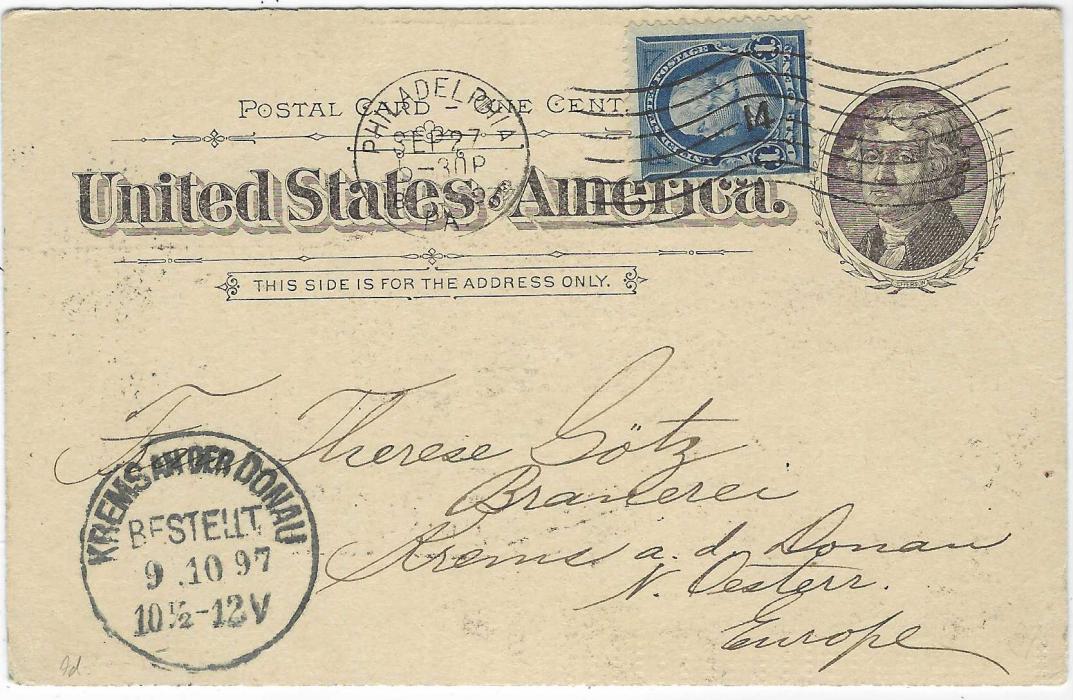 POSTAL CARD – ONE CENT.
United States of America.
THIS SIDE IS FOR THE ADDRESS ONLY.
PHILADELPHIA
SEP 27
PA
14
JEFFERSON
Fr Therese Götz
Brauerei
Krems a. d. Donau
N. Oesterr.
Europe
KREMS AN DER DONAU
BESTELLT
9 .10 97
10½-12V